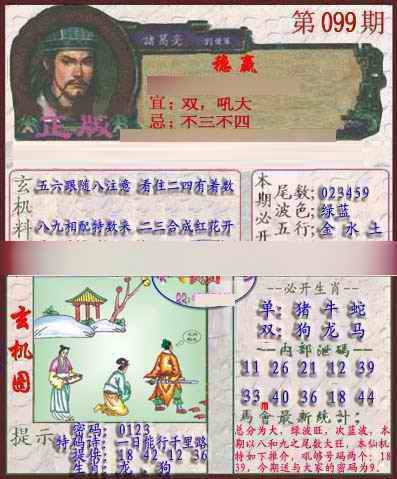 第099期
諸葛亮 劉伯溫
稳赢
宜；双，吼大
忌；不三不四
正版
玄机料
五六跟随八注意 看住二四有着数
八九相配特数来 二三合成红花开
本期必开
尾数；023459
波色；绿蓝
五行；金 水 土
必开生肖
单：猪 牛 蛇
双：狗 龙 马
内部泄码
11 26 21 12 39
33 40 36 18 44
玄机图
提示
密码：0123
特码诗：一日能行千里路
提倍：18 42 12 36
生肖：龙，狗
馬會最新統計：
总分为大，绿波旺，次蓝波，本
期以八和九之尾数大旺，本仙机
特如下推介，吼够号码两个：18
39，今期送与大家的密码为9．